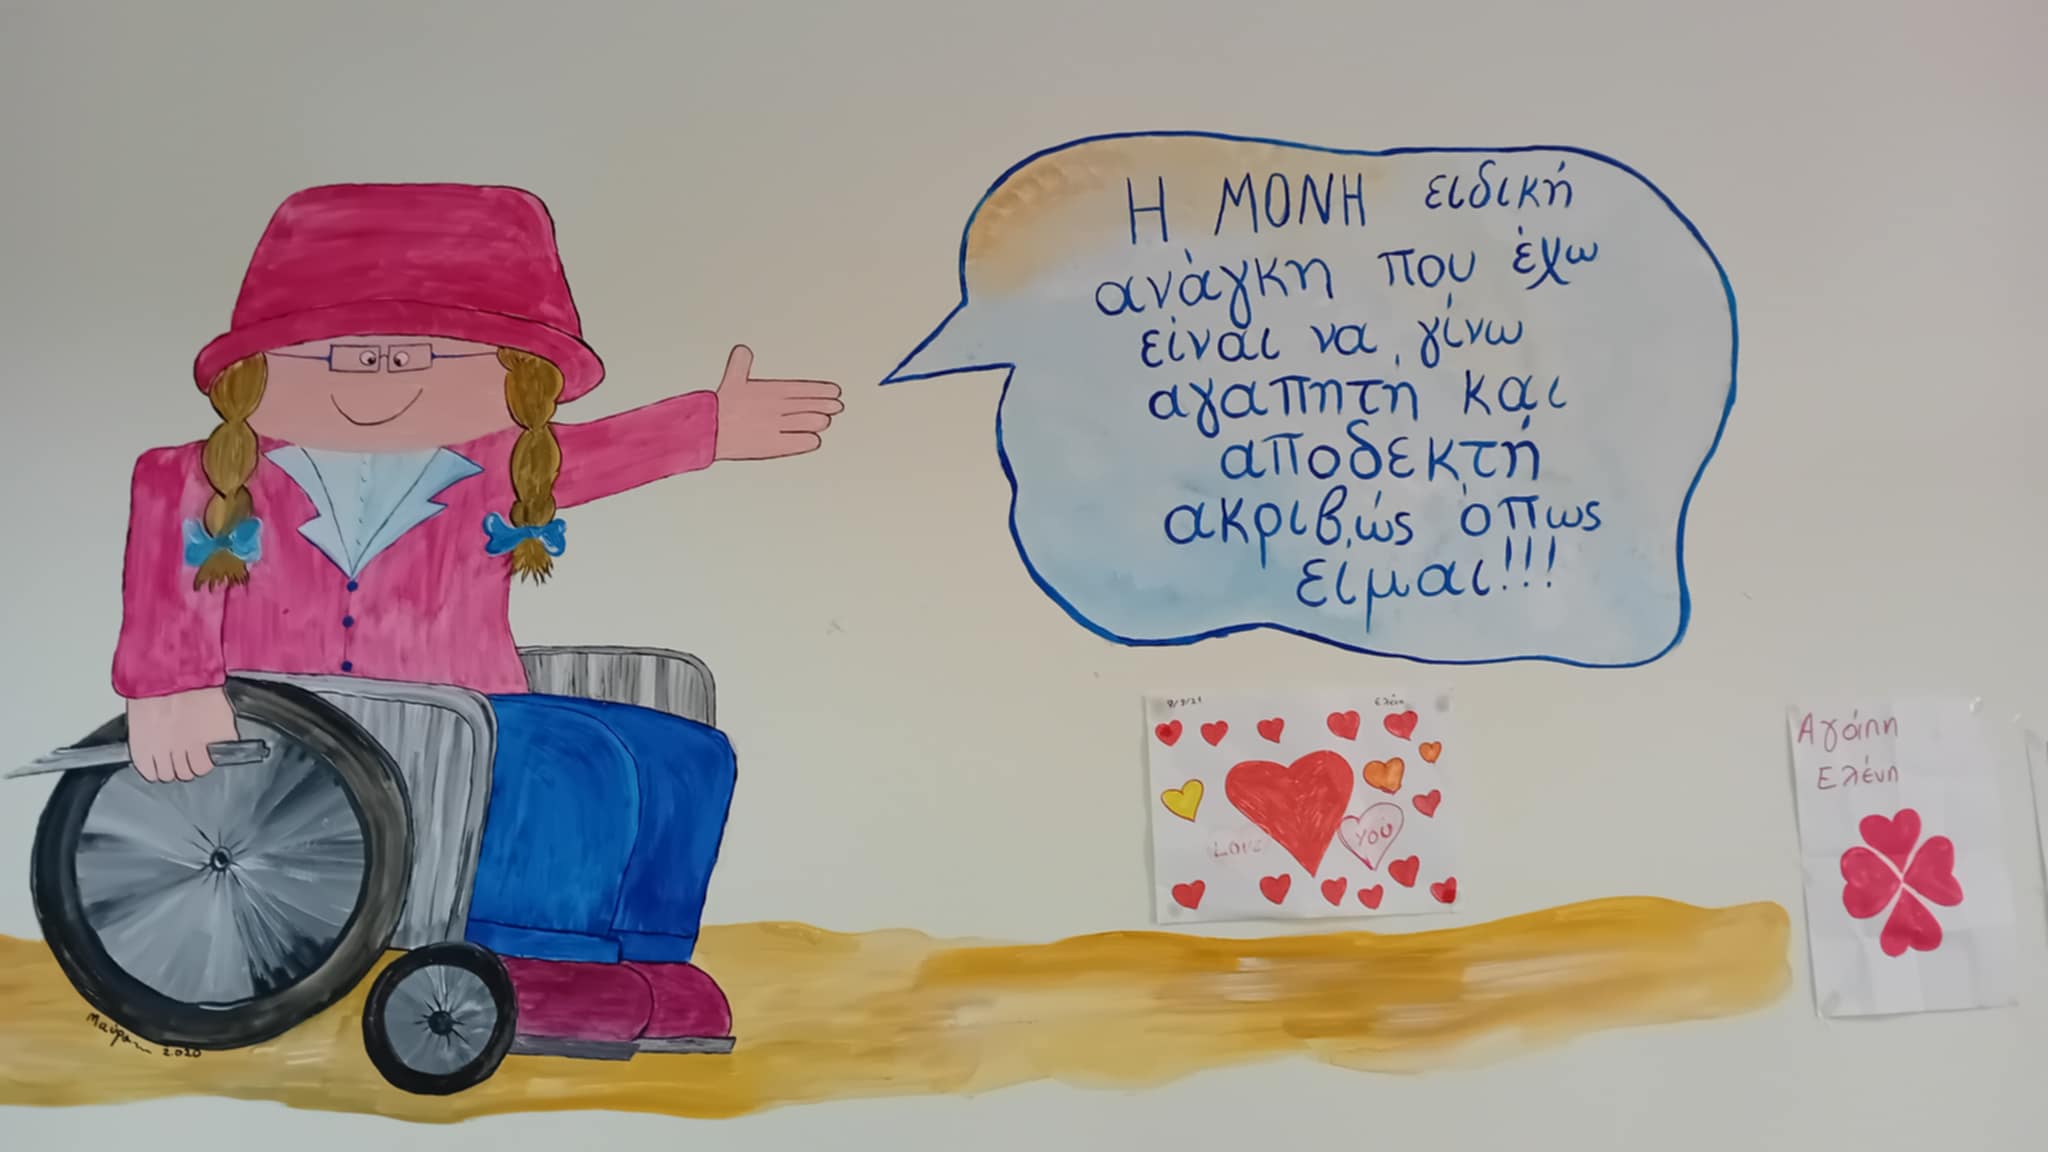 Η ΜΟΝΗ ειδική
ανάγκη που έχω
είναι να γίνω
αγαπητή και
αποδεκτή
ακριβώς όπως
είμαι!!!
Ελένη
LOVE
YOU
Αγάπη
Ελένη
2020